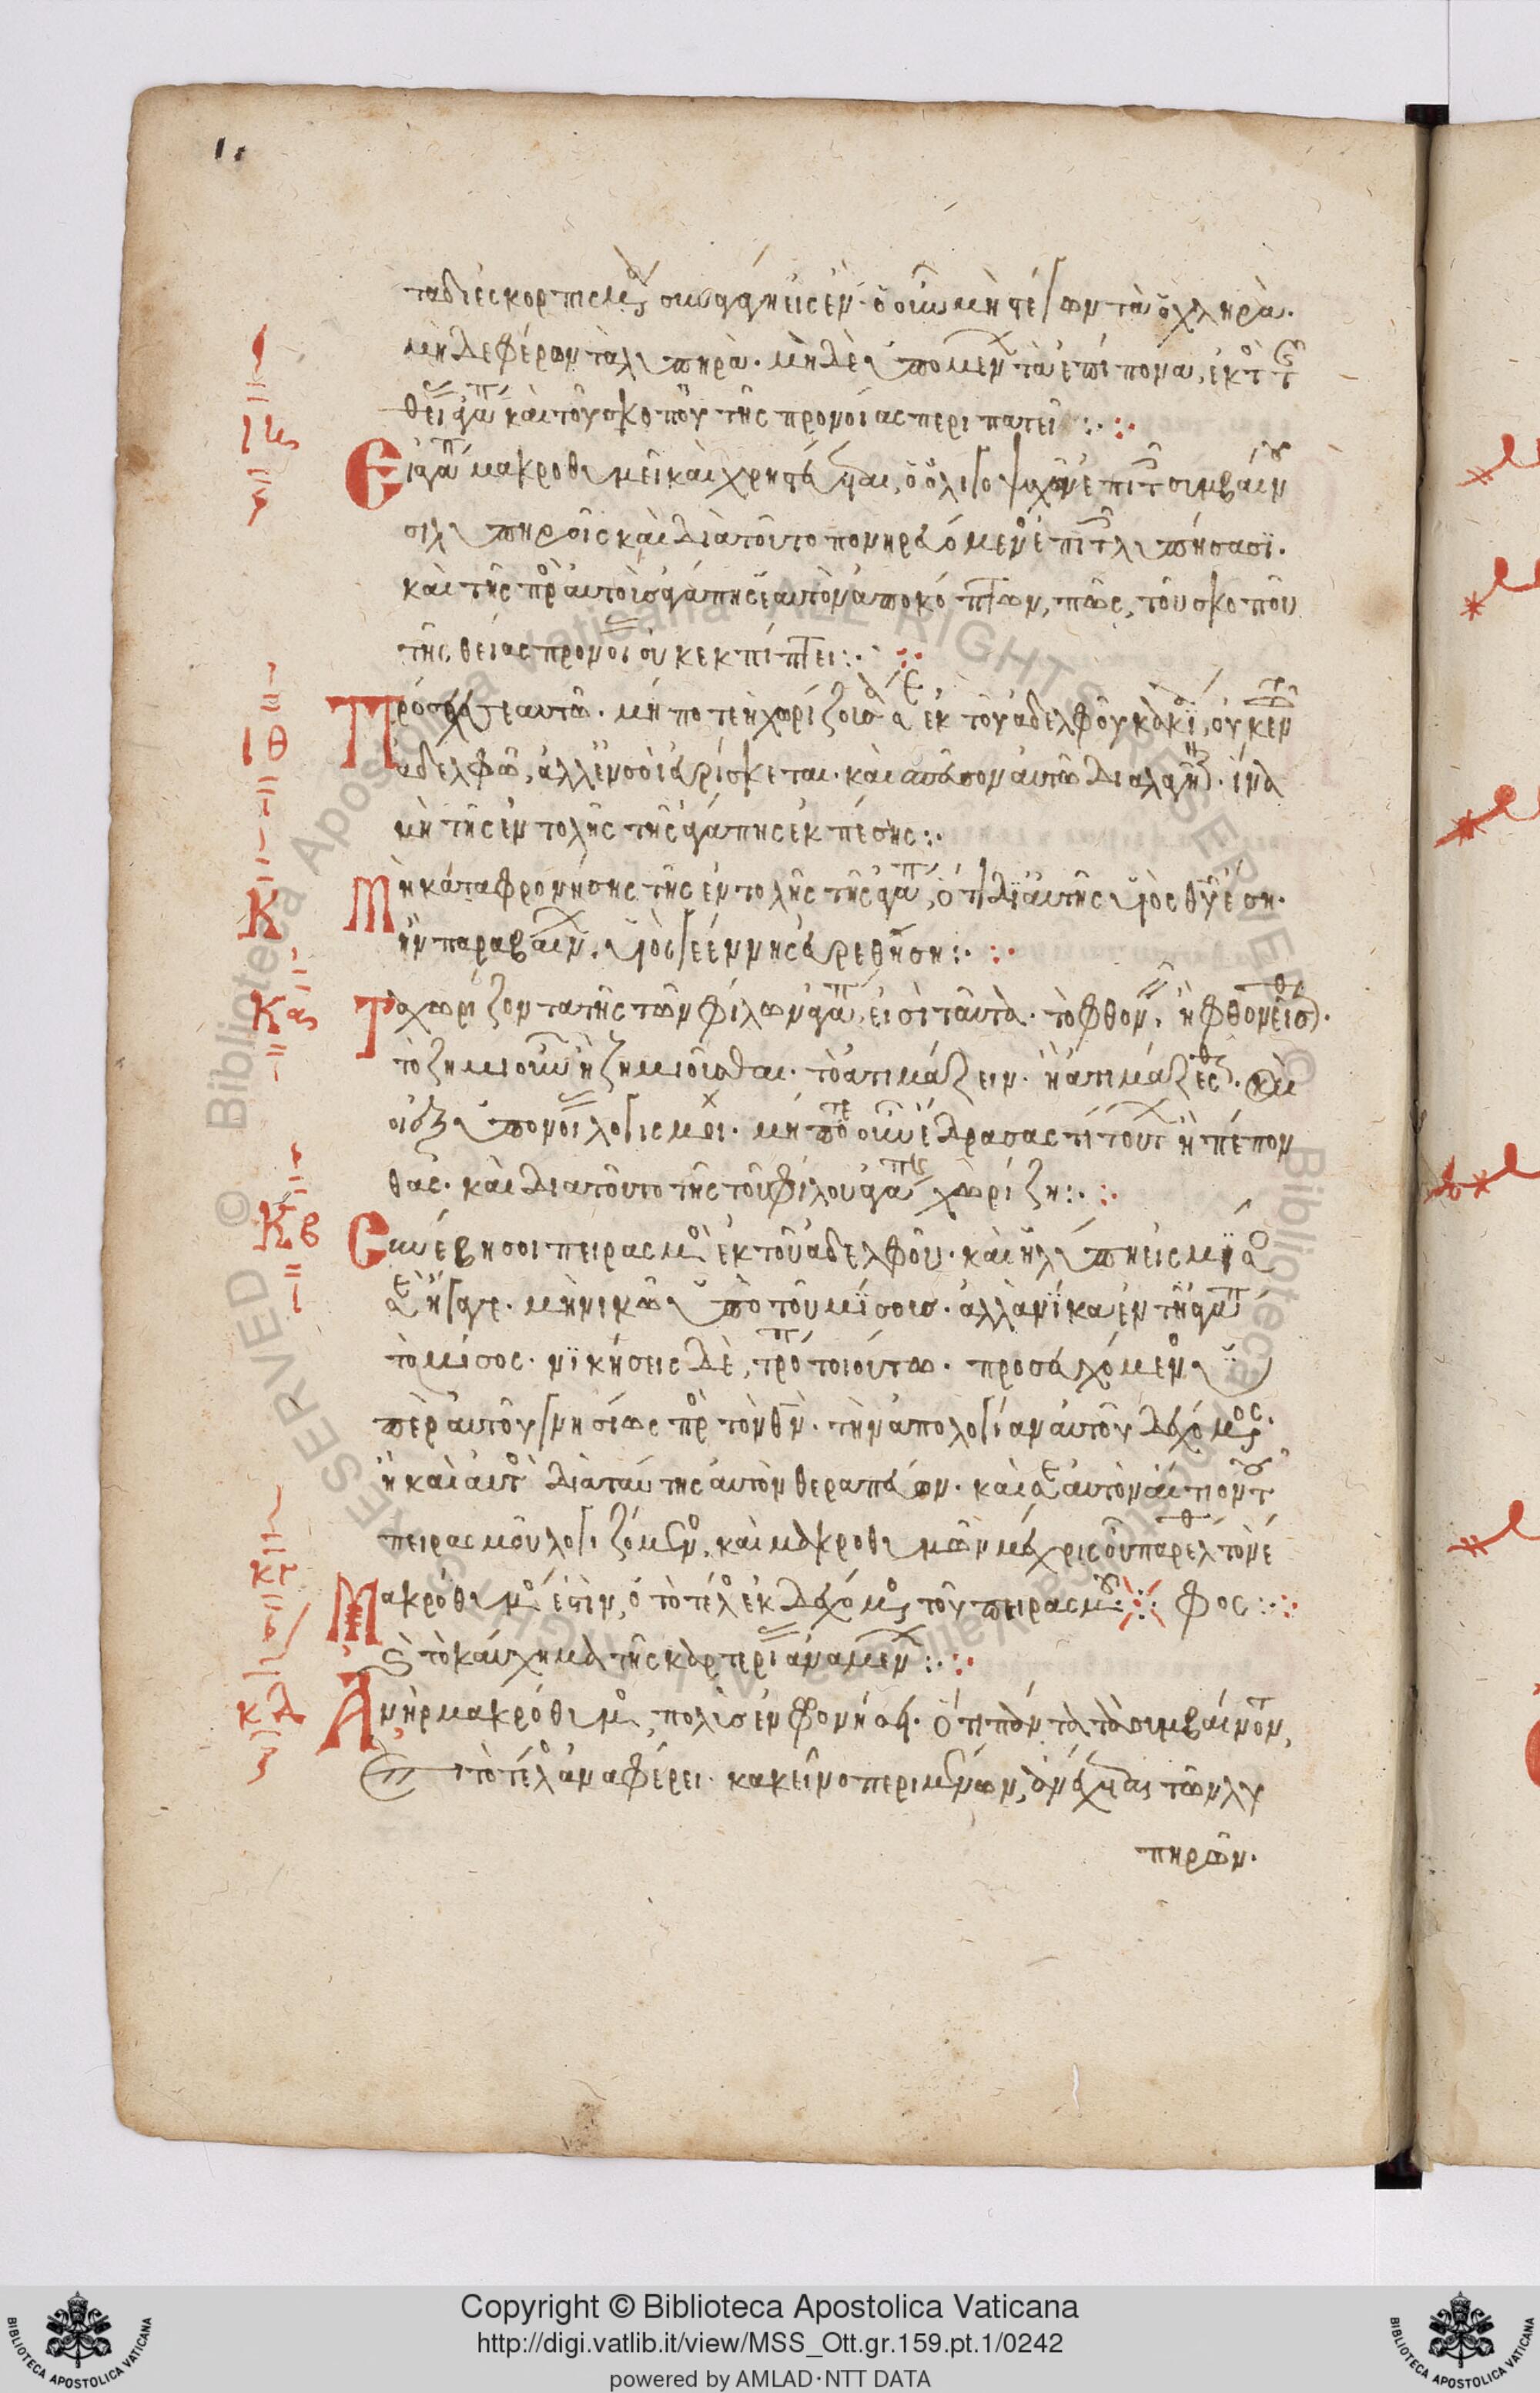 τα διεσκορπισμένα συναγαγεῖν· ὁ οὖν μὴ στέγων τὰ ὀχληρὰ·
μὴ δὲ φέρων τὰ λυπηρὰ· μὴ δὲ ὑπομένων τὰ ἐπίπονα, ἐκτὸς τῆς
θείας ἀγάπης καὶ τοῦ σκοποῦ τῆς προνοίας περιπατεῖ :·
ιη
Εἰ ἀγάπη μακροθυμεῖ καὶ χρηστεύεται, ὁ ὀλιγοψυχῶν ἐπὶ τοῖς συμβαίνου
σι λυπηροῖς καὶ διὰ τοῦτο πονηρευόμενος ἐπὶ τοῖς λυπήσασι·
καὶ τῆς πρὸς αὐτοὺς ἀγάπης ἑαυτὸν ἀποκόπτων, πῶς, τοῦ σκοποῦ
τῆς θείας προνοίας οὐκ ἐκπίπτει :·
ιθ
Πρόσεχε σεαυτῷ· μήποτε ἡ χωρίζουσά σε ἐκ τοῦ ἀδελφοῦ κακία, οὐκ ἐν τῷ
ἀδελφῷ, ἀλλ' ἐν σοὶ εὑρίσκεται· καὶ σπεῦσον αὐτῷ διαλλαγῆναι· ἵνα
μὴ τῆς ἐντολῆς τῆς ἀγάπης ἐκπέσῃς :·
Κ
Μὴ καταφρονήσῃς τῆς ἐντολῆς τῆς ἀγάπης, ὅτι δι' αὐτῆς υἱὸς θῦ ἔσῃ·
ἣν παραβαίνων, υἱὸς γεέννης εὑρεθήσῃ :·
Κα
Τὰ χωρίζοντα τῆς τῶν φίλων ἀγάπης, εἰσὶ ταῦτα· τὸ φθονεῖν, ἢ φθονεῖσθαι·
τὸ ζημιοῦν ἢ ζημιοῦσθαι· τὸ ἀτιμάζειν· ἢ ἀτιμάζεσθαι· καὶ
οἱ ἐξ ὑπονοίας λογισμοί· μήποτε οὖν ἔδρασάς τι τοιοῦτον ἢ πέπον
θας· καὶ διὰ τοῦτο τῆς τοῦ φίλου ἀγάπης χωρίζῃ :·
Κβ
Συνέβη σοι πειρασμὸς ἐκ τοῦ ἀδελφοῦ· καὶ ἡ λύπη εἰς μῖσός
σε ἤγαγε· μὴ νικῶ ὑπὸ τοῦ μίσους· ἀλλὰ νίκα ἐν τῇ ἀγάπῃ
τὸ μῖσος· νικήσεις δὲ, τρόπῳ τοιούτῳ· προσευχόμενος ὑ
πὲρ αὐτοῦ γνησίως πρὸς τὸν θν· τὴν ἀπολογίαν αὐτοῦ δεχόμενος·
ἢ καὶ αὐτὸς διὰ ταύτης αὐτὸν θεραπεύων· καὶ σεαυτὸν αἴτιον τοῦ
πειρασμοῦ λογιζόμενος, καὶ μακροθυμῶν μέχρις οὗ παρέλθῃ τὸ νέ
φος :·
κγ
Μακρόθυμός ἐστιν, ὁ τὸ τέλος ἐκδεχόμενος τοῦ πειρασμοῦ
καὶ τὸ καύχημα τῆς καρτερίας ἀναμένων :·
κδ
Ἀνὴρ μακρόθυμος, πολὺς ἐν φρονήσει· ὅτι πάντα τὰ συμβαίνοντα,
εἰς τὸ τέλος ἀναφέρει· κἀκεῖνο περιμένων, ἀνέχεται τῶν λυ
πηρῶν·
Copyright © Biblioteca Apostolica Vaticana
http://digi.vatlib.it/view/MSS_Ott.gr.159.pt.1/0242
powered by AMLAD·NTT DATA